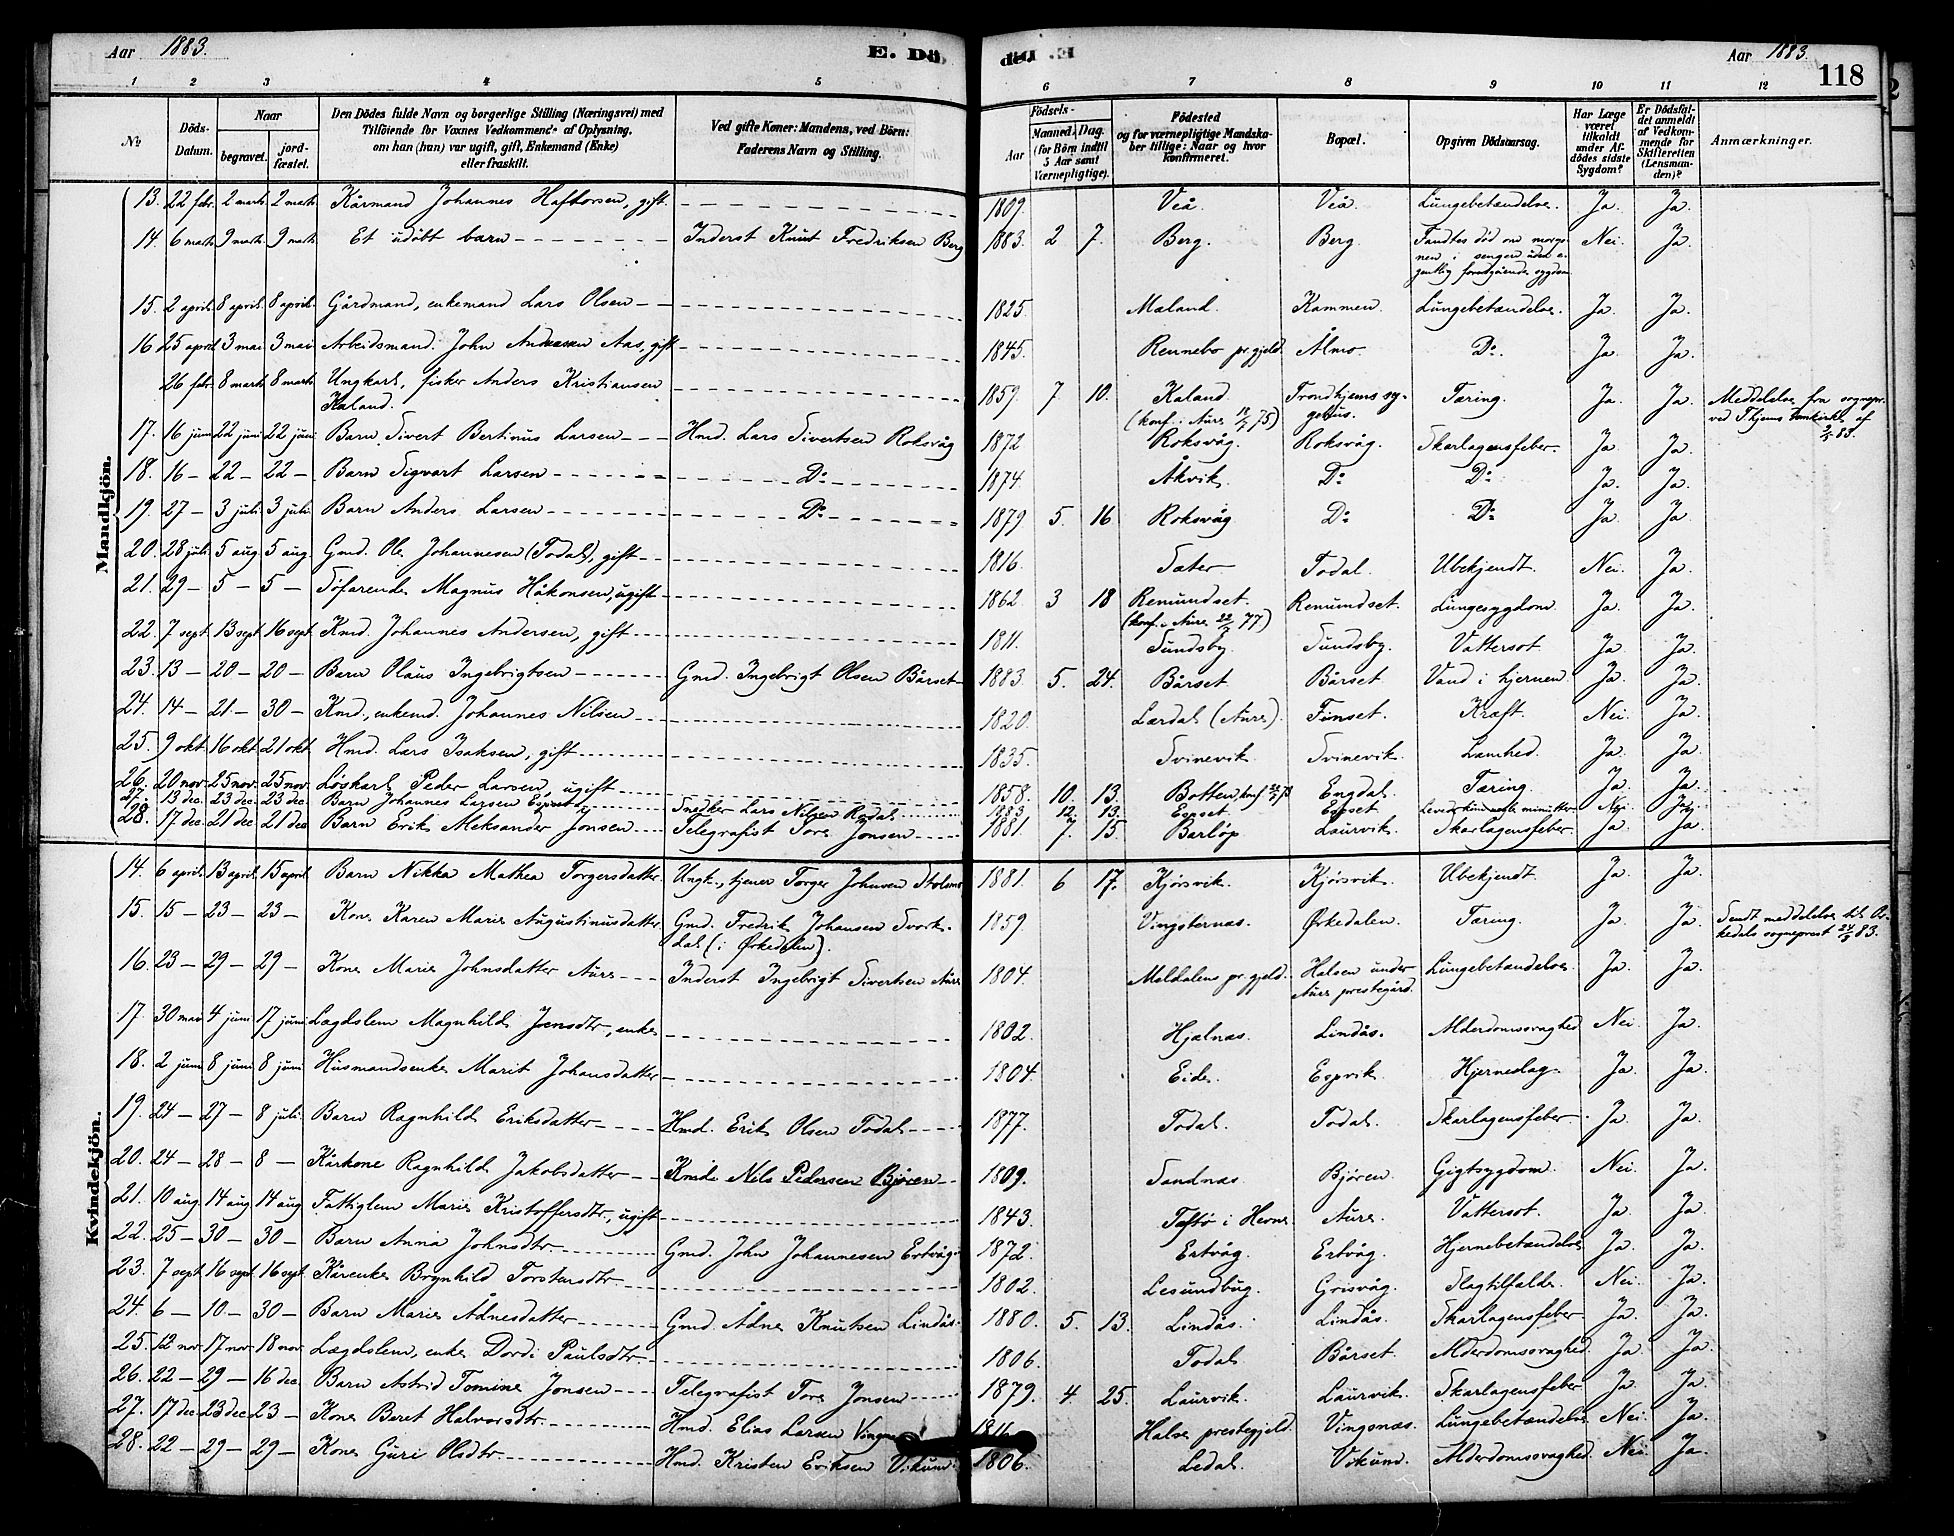 Aar 1883. E. Dö
död E. Aar 1883.
118
1 2 3 4 5 6 7 8 9 10 11 12
№ Döds-Datum. Naar begravet. jordfæstet. Den Dödes fulde Navn og borgerlige Stilling (Næringsvei) med Tilföiende for Voxnes Vedkommende af Oplysning, om han (hun) var ugift, gift, Enkemand (Enke) eller fraskilt. Ved gifte Koner: Mandens, ved Börn: Faderens Navn og Stilling. Födsels- Aar Maaned. Dag. (for Börn indtil 5 Aar samt Værnepligtige). Födested og for værnepligtige Mandskaber tillige: Naar og hvor konfirmeret. Bopæl. Opgiven Dödsaarsag. Har Læge været tilkaldt under Afdödes sidste Sygdom? Er Dödsfaldet anmeldt af Vedkommende for Skifteretten (Lensmanden)? Anmærkninger.
Mandkjön.
13. 22 febr. 2 marts 2 marts Kårmand Johannes Hafstorsen, gift 1809. Veå. Veå. Lungebetændelse. Ja. Ja.
14. 6 marts 9 marts 9 marts Et udöbt barn Inderst Knut Fredriksen Berg 1883. 2 7. Berg. Berg. Fandtes död om morgenen i sengen uden egentlig foregående sygdom Nei. Ja.
15. 2 april. 8 april. 8 april. Gårdmand, enkemand Lars Olsen 1825. Mæland. Kammen. Lungebetændelse. Ja. Ja.
16 25 april 3 mai 3 mai Arbeidsmand. John Andersen Aas, gift 1845. Rennebo pr.gjeld. Ålmo. Do. Ja. Ja.
26 febr. 8 marts 8 marts Ungkarl, fisker Anders Kristiansen Kaland. 1859. 7 10. Kaland (konf. i Aure 75) Trondhjems sygehus. Tæring. Ja. Ja. Meddelelse fra sognepr. ved Thjems domkirke af 83.
17. 16 juni 22 juni 22 juni Barn. Sivert Bertinus Larsen Hmd. Lars Sivertsen Roksvåg 1872 Roksvåg. Roksvåg. Skarlagensfeber. Ja. Ja.
18. 16 — 22 — 22 — Barn Sigvart Larsen Do 1874. Åkvik. Do Do Ja. Ja.
19. 27 — 3 juli 3 juli. Barn Anders Larsen Do 1879 5. 16 Roksvåg Do Do Ja Ja
20. 28 juli. 5 aug. 5 aug. Gmd. Ole Johannesen (Todal), gift 1816. Sæter Todal. Ubekjendt. Nei. Ja.
21. 29 — 5 — 5 — Söfarende Magnus Håkonsen, ugift 1862. 3 18 Remundset. (konf. i Aure 77) Remundset. Lungesygdom. Ja. Ja.
22. 7 sept. 13 sept. 16 sept. Kmd. Johannes Andersen, gift 1811. Sundsby. Sundsby. Vattersot. Ja. Ja.
23. 13 — 20 — 20 — Barn Olaus Ingebrigtsen Gmd. Ingebrigt Olsen Bårset 1883. 5. 24. Bårset. Bårset. Vand i hjernen. Ja. Ja.
24. 14 — 21 — 30 — Kmd., enkemd. Johannes Nilsen 1820. Lærdal (Aure). Finset. Kræft. Nei. Ja.
25. 9 okt. 16 okt. 21 okt. Hmd. Lars Isaksen, gift 1835. Svinevik. Svinevik. Lamhed. Ja. Ja.
26. 20 nov. 25 nov. 25 nov. Löskarl Peder Larsen, ugift 1858. 10. 13. Botten, konf. Engdal. Tæring. Ja. Ja.
27. 13 dec. 23 dec. 23 dec. Barn Johannes Larsen Snedker Lars Nilsen 1883 12. 13. Espset. Espset. Levede kun nogle minutter Nei Ja.
28. 17 dec. 21 dec 21 dec Barn Erik Aleksander Jonsen Telegrafist Tore Jonsen 1881. 7. 15. Barlöp Laurvik. Skarlagensfeber. Ja. Ja.
Kvindekjön.
14. 6 april. 13 april. 15 april. Barn Nikka Mathea Torgersdatter. Ungk., tjener Torger Johnsen 1881. 6 17. Kjörsvik. Kjörsvik. Ubekjendt. Ja. Ja.
15. 15 — 23 — 23 — Kone Karen Marie Augustinusdatter. Gmd. Fredrik Johansen Svorkdal (i Ørkedalen). 1859. Vingsternæs. Ørkedalen. Tæring. Ja. Ja. Sendt meddelelse til Orkedals sogneprest 83.
16. 23 — 29 — 29 — Kone Marie Johnsdatter Aure Inderst Ingebrigt Sivertsen Aure 1804. Meldalens pr.gjeld. Halsen under Aure prestegård. Lungebetændelse. Ja. Ja.
17. 30 mai 4 juni 17 juni Lægdslem Magnhild Jonsdtr., enke 1802. Hjelnæs. Lindås. Alderdomssvaghed Nei. Ja.
18. 2 juni 8 juni 8 juni Husmandsenke Marit Johansdatter 1804. Eide. Espvik. Hjerneslag. Ja. Ja.
19. 24 — 27 — 8 juli. Barn Ragnhild Eriksdatter Hmd. Erik Olsen Todal 1877. Todal. Todal. Skarlagensfeber. Ja. Ja.
20. 24 — 28 — 8 — Kårkone Ragnhild Jakobsdatter Kmd. Nils Pedersen Bjøren 1809. Sandnæs. Bjøren. Gigtsygdom. Nei. Ja.
21. 10 aug. 14 aug 14 aug Fattiglem Marie Kristoffersdtr., ugift 1843. Taftö i Hevne. Aure. Vattersot. Ja. Ja.
22. 25 — 30 — 30 — Barn Anna Johnsdtr. Gmd. John Johannesen Ertvåg 1872. Ertvåg. Ertvåg. Hjernebetændelse. Ja. Ja.
23. 7 sept. 16 sept. 16 sept. Kårenke Brynhild Torstensdtr. 1802. Lesundbug. Grisvåg. Slagtilfælde. Nei. Ja.
24. 6 — 10 — 30 — Barn Marie Ådnesdatter Gmd. Ådne Knutsen Lindås. 1880. 5. 13. Lindås. Lindås. Skarlagensfeber. Ja. Ja.
25. 12 nov. 17 nov. 18 nov. Lægdslem, enke Dordi Paulsdtr. 1806. Todal. Bårset. Alderdomssvaghed. Ja. Ja.
26. 22 — 29 — 16 dec. Barn Astrid Tomine Jonsen Telegrafist Tore Jonsen 1879. 4 25. Laurvik. Laurvik. Skarlagensfeber. Ja. Ja.
27. 17 dec 23 dec 23 — Kone Beret Halvorsdtr. Hmd. Elias Larsen Halse prestegjeld. Vingsnæs. Lungebetændelse Nei. Ja.
28. 22 — 29 — 29 — Kone Guri Olsdtr. Hmd. Kristen Eriksen Vikund. 1806. Ledal. Vikund. Alderdomssvaghed. Nei. Ja.